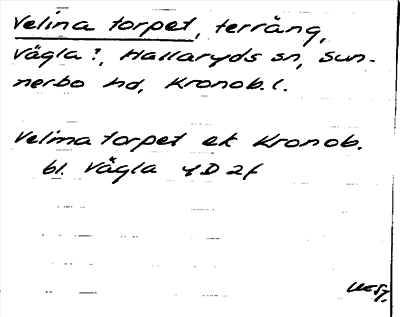 Velina torpet, terräng,
Vägla?, Hallaryds sn, Sun-
nerbo hd, Kronob. l.
Velima torpet ek Kronob.
bl. Vägla 4D 2f